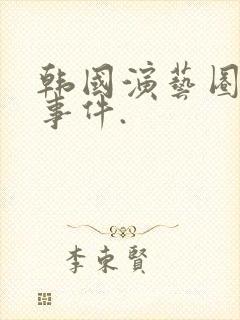 韩國演藝圈
事件.
李東賢